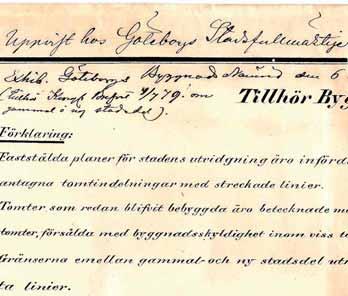 Uppvist hos Göteborgs Stadsfullmäktige
Exhib. Göteborgs Byggnads Nämnd den 6
Tillhör Byg
gammal i ny stadsdel).
Förklaring:
Faststälda planer för stadens utvidgning äro införd
antagna tomtindelningar med streckade linier.
Tomter som redan blifvit bebyggda äro betecknade me
tomter, försålda med byggnadsskyldighet inom viss t
Gränserna emellan gammal- och ny stadsdel utm
ta linier.